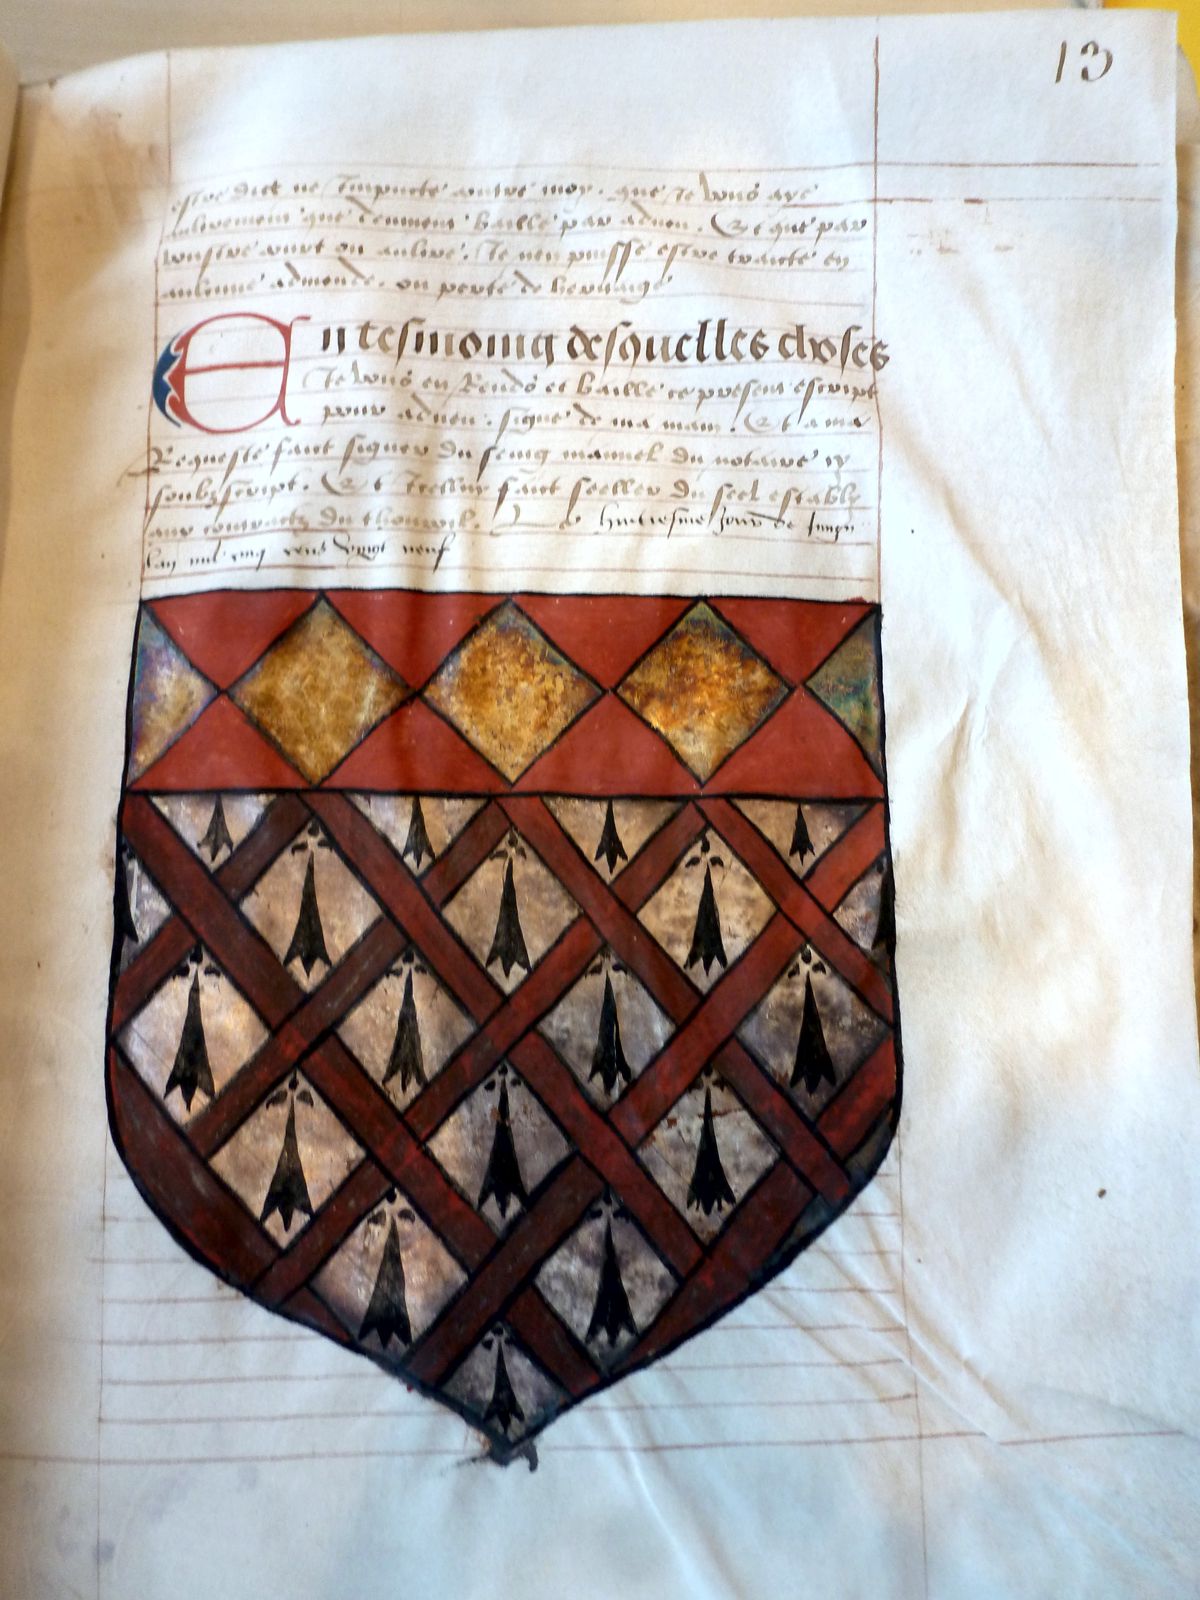 13
estre dict ne Imputé contre moy. que Je vous aye
aultrement que deuement baillé par adveu. Et que par
vostre court ou aultre. Je nen puisse estre traicté en
aulcune admende. ou perte de heritaige
En tesmoing desquelles choses
Je vous en Rendz et baille ce present escript
pour adveu. signé de ma main. Et a ma
Requeste faict signer du seing manuel du notaire cy
soubzscript. Et Icelluy faict seeller du seel estably
aux contractz du
Le huitiesme Jour de Juign
lan mil cinq cens vingt neuf